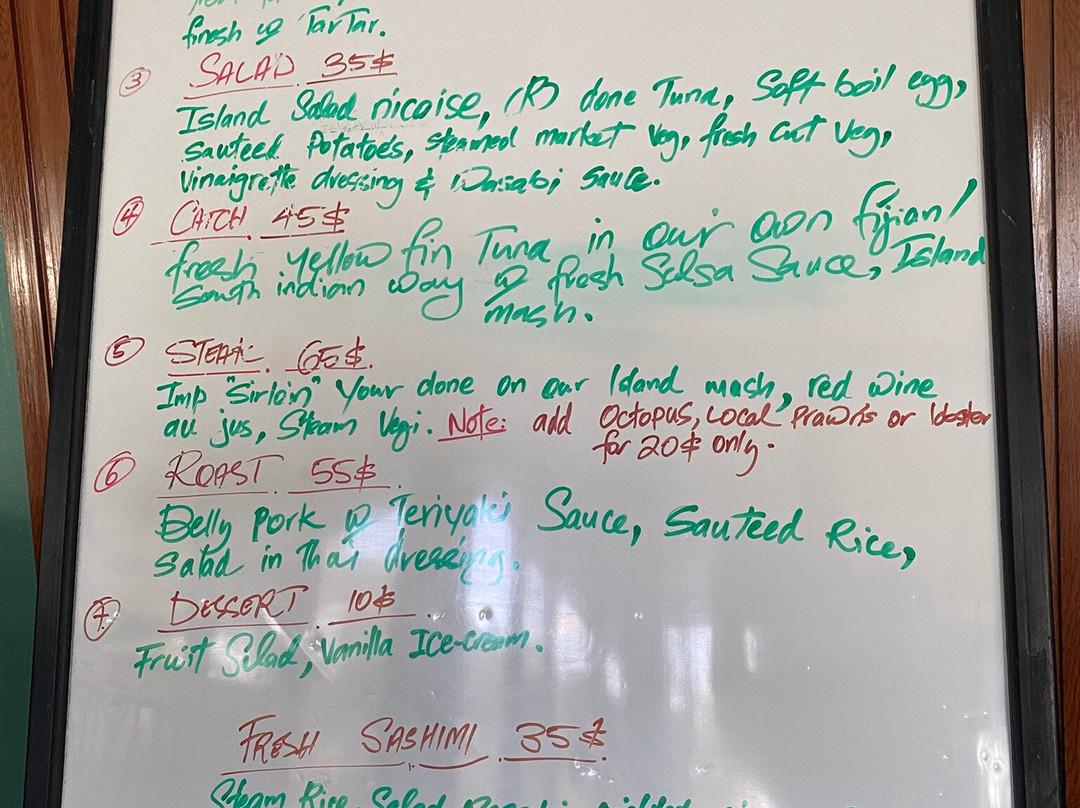 finsh w TarTar.
③ SALAD 35$
Island Salad nicoise, (R) done Tuna, Soft boil egg,
sauteed Potatoe's, steamed market Veg, fresh cut Veg,
Vinaigrette dressing & Wasabi sauce.
④ CATCH 45$
fresh yellow fin Tuna in our own fijian/
South indian way w fresh Salsa Sauce, Island
mash.
⑤ STEAK 65$.
Imp "Sirloin" Your done on our Island mash, red wine
au jus, Steam Vegi. Note: add Octopus, Local Prawns or lobster
for 20$ only.
⑥ ROAST 55$
Belly Pork w Teriyaki Sauce, Sauteed Rice,
Salad in Thai dressing.
⑦ DESSERT 10$
Fruit Salad, Vanilla Ice-cream.
FRESH SASHIMI 35$
Steam Rice, Salad